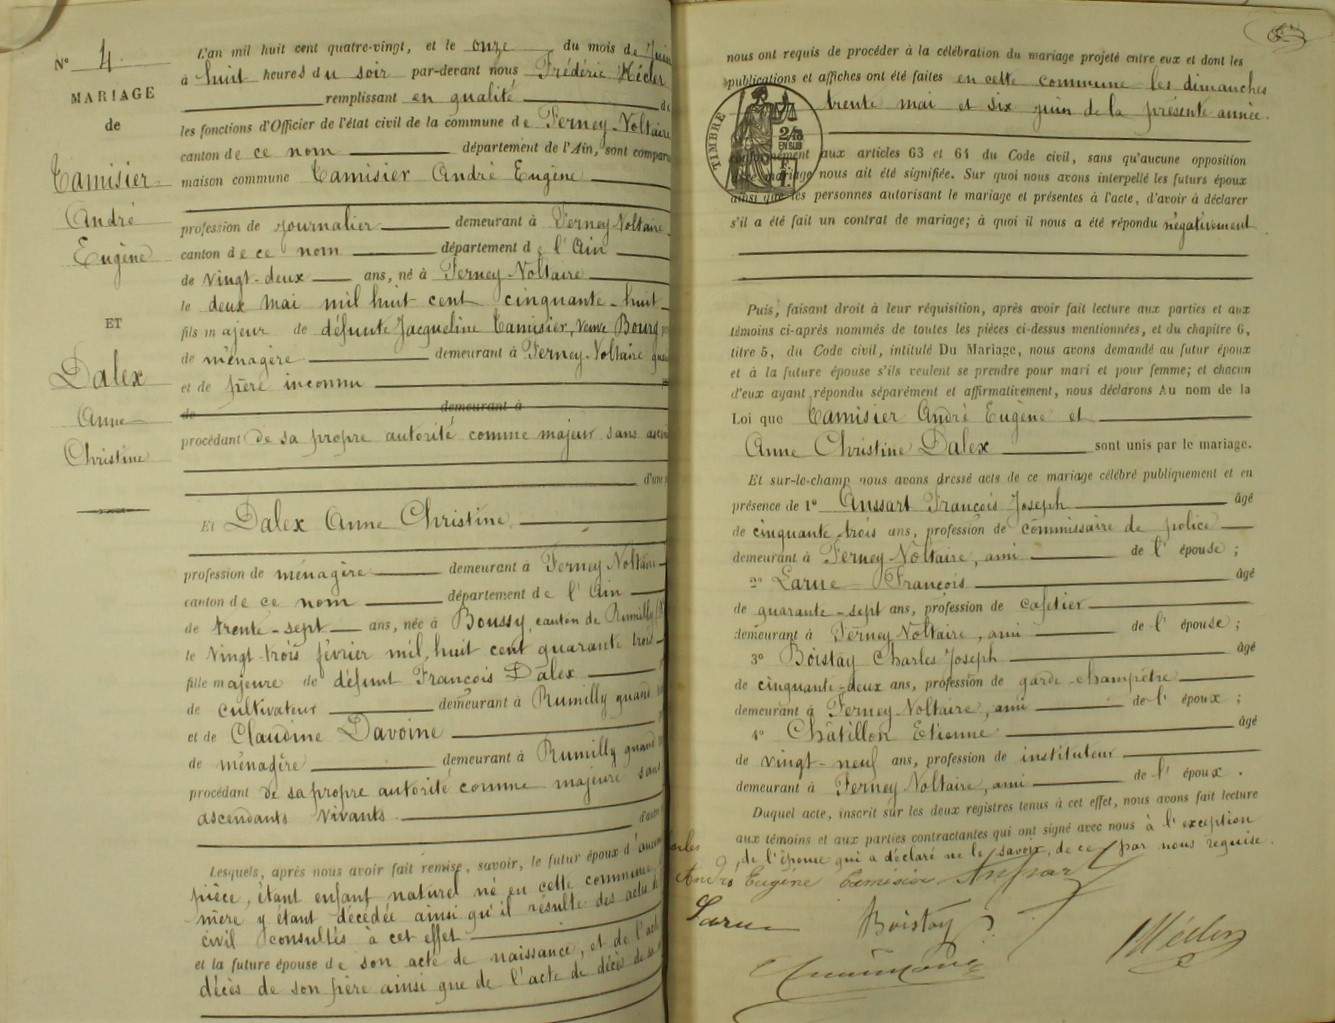 N° 4
MARIAGE
de
Tamisier
André
Eugène
ET
Dalex
Anne
Christine
L'an mil huit cent quatre-vingt, et le onze du mois de Juin
à huit heures du soir par-devant nous Frédéric
remplissant en qualité de
les fonctions d'Officier de l'état civil de la commune de Ferney-Voltaire
canton de ce nom département de l'Ain, sont comparu
maison commune Tamisier André Eugène
profession de journalier demeurant à Ferney-Voltaire
canton de ce nom département de l'Ain
de vingt-deux ans, né à Ferney-Voltaire
le deux mai mil huit cent cinquante-huit
fils majeur de défunte Jacqueline Tamisier, veuve Bourg
de ménagère demeurant à Ferney-Voltaire
et de père inconnu
de demeurant à
procédant de sa propre autorité comme majeur sans
d'une
Et Dalex Anne Christine
profession de ménagère demeurant à Ferney Voltaire
canton de ce nom département de l'Ain
de trente-sept ans, née à Boussy, canton de Rumilly
le vingt-trois février mil huit cent quarante trois
fille majeure de défunt François Dalex
de cultivateur demeurant à Rumilly quand
et de Claudine Davoine
de ménagère demeurant à Rumilly quand
procédant de sa propre autorité comme majeure sans
ascendants vivants.
Lesquels, après nous avoir fait remise, savoir, le futur époux d'aucune
pièce, étant enfant naturel né en cette commune,
mère y étant décédée ainsi qu'il résulte des actes
civil consultés à cet effet
et la future épouse de son acte de naissance, et de l'acte
décès de son père ainsi que de l'acte de décès de
nous ont requis de procéder à la célébration du mariage projeté entre eux et dont les
publications et affiches ont été faites en cette commune les dimanches
trente mai et six juin de la présente année.
TIMBRE
2/10
EN SUS
conformément aux articles 63 et 64 du Code civil, sans qu'aucune opposition
mariage nous ait été signifiée. Sur quoi nous avons interpellé les futurs époux
ainsi que les personnes autorisant le mariage et présentes à l'acte, d'avoir à déclarer
s'il a été fait un contrat de mariage; à quoi il nous a été répondu négativement
Puis, faisant droit à leur réquisition, après avoir fait lecture aux parties et aux
témoins ci-après nommés de toutes les pièces ci-dessus mentionnées, et du chapitre 6,
titre 5, du Code civil, intitulé Du Mariage, nous avons demandé au futur époux
et à la future épouse s'ils veulent se prendre pour mari et pour femme; et chacun
d'eux ayant répondu séparément et affirmativement, nous déclarons Au nom de la
Loi que Tamisier André Eugène et
Anne Christine Dalex sont unis par le mariage.
Et sur-le-champ nous avons dressé acte de ce mariage célébré publiquement et en
présence de 1° Anssart François Joseph âgé
de cinquante trois ans, profession de commissaire de police
demeurant à Ferney Voltaire, ami de l'épouse;
2° Larue François âgé
de quarante-sept ans, profession de cafetier
demeurant à Ferney Voltaire, ami de l'épouse;
3° Boistay Charles Joseph âgé
de cinquante-deux ans, profession de garde-champêtre
demeurant à Ferney Voltaire, ami de l'époux;
4° Châtillon Etienne âgé
de vingt-neuf ans, profession de instituteur
demeurant à Ferney Voltaire, ami de l'époux.
Duquel acte, inscrit sur les deux registres tenus à cet effet, nous avons fait lecture
aux témoins et aux parties contractantes qui ont signé avec nous à l'exception
de l'épouse qui a déclaré ne le savoir, de ce par nous requise.
André Eugène Tamisier Anssart
Larue Boistay